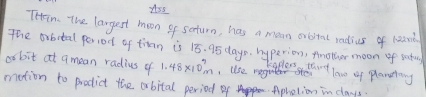 Ass
Titan. The largest moon of saturn, has a mean orbital radius of 1.22x10⁹m
The orbital period of titan is 15.95 days. hyperion, Another moon of saturn
orbit at a mean radius of 1.48x10⁹m, Use keplers third law of planetary
motion to predict the orbital period of Aphelion in days.